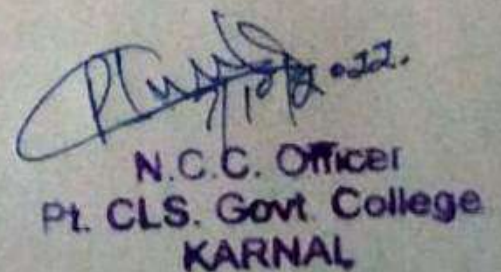 N.C.C. Officer
Pt. CLS. Govt. College
KARNAL